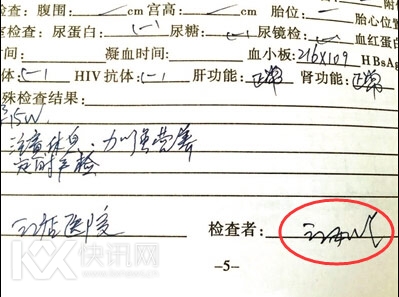 检查：腹围： cm 宫高： cm 胎位：
检查：尿蛋白：(-) 尿糖：(-) 尿镜检：(-) 血红蛋白
时间： 凝血时间： 血小板：216×109 HBsAg
体：(-) HIV抗体：(-) 肝功能：正常 肾功能：正常
殊检查结果：
15W
注意休息.加强营养
定时产检
医院 检查者：
-5-
KX快讯网